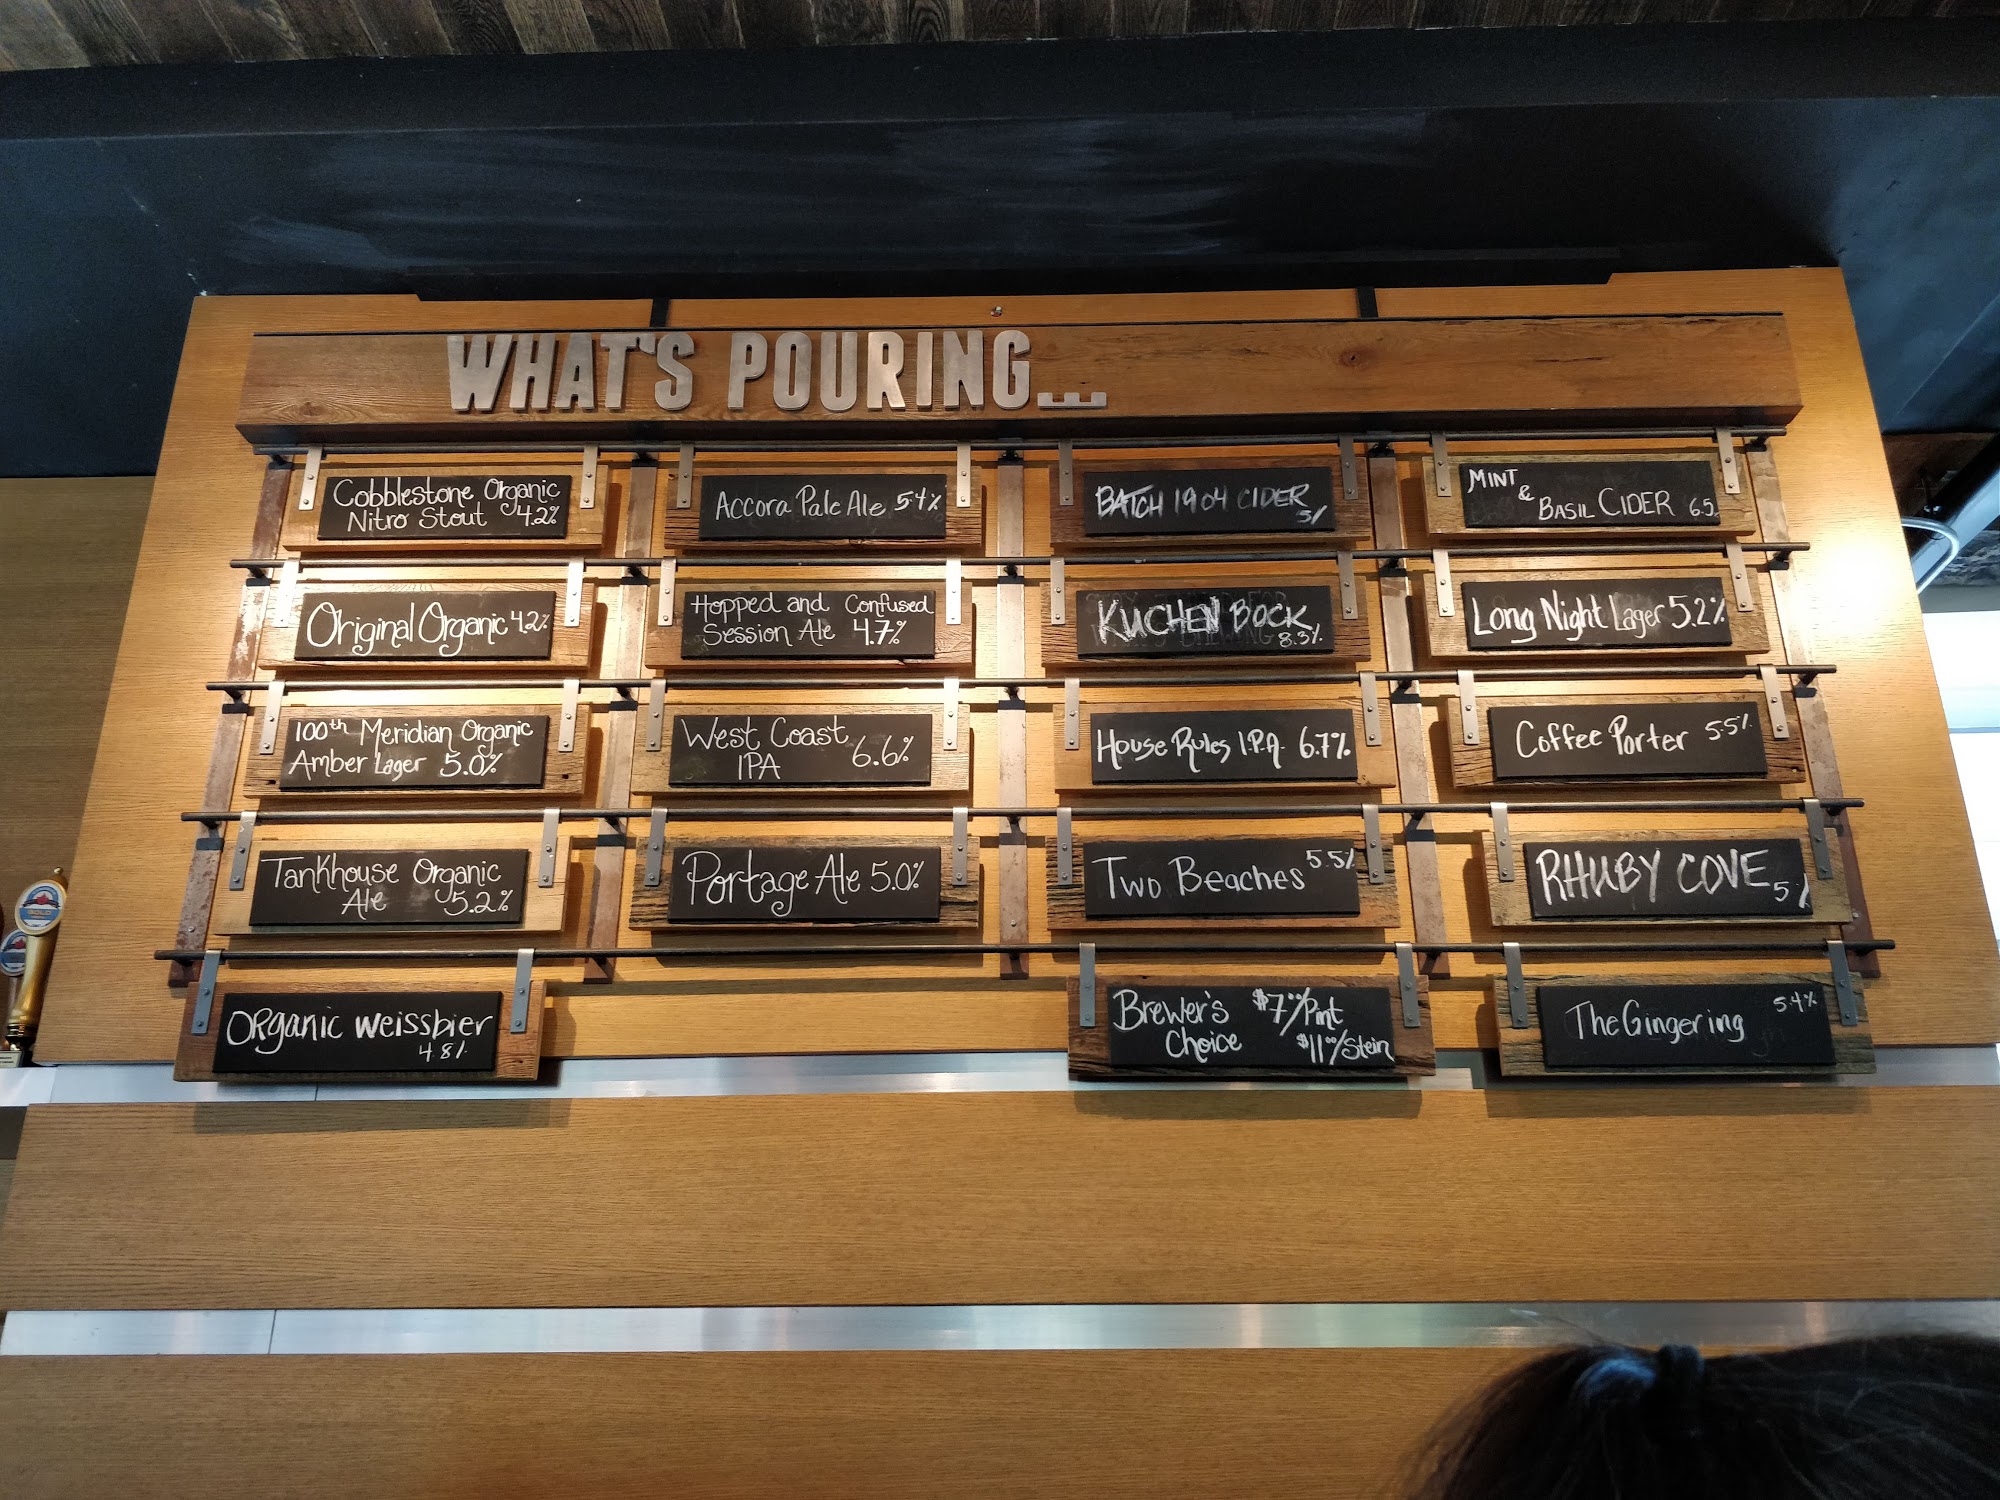 WHAT'S POURING...
Cobblestone Organic
Nitro Stout 4.2%
Original Organic 4.2%
100th Meridian Organic
Amber Lager 5.0%
Tankhouse Organic
Ale 5.2%
Organic Weissbier
4.8%
Accora Pale Ale 5.4%
Hopped and Confused
Session Ale 4.7%
West Coast
IPA 6.6%
Portage Ale 5.0%
BATCH 1904 CIDER
5%
KUCHEN BOCK
8.3%
House Rules I.P.A. 6.7%
Two Beaches 5.5%
Brewer's $7.00/Pint
Choice $11.00/Stein
MINT
&
BASIL CIDER 6.5
Long Night Lager 5.2%
Coffee Porter 5.5%
RHUBY COVE
5%
The Gingering 5.4%